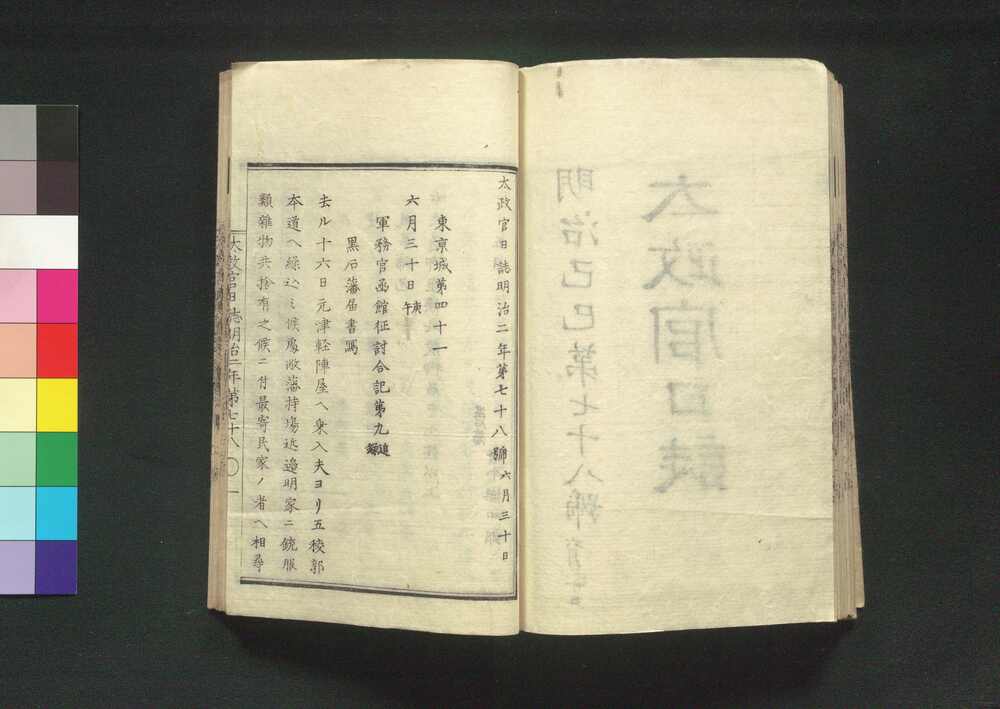 太政官日誌明治二年第七十八號 六月三十日
東京城第四十一
六月三十日 庚午
軍務官函館征討合記第九 追錄
黒石藩届書寫
去ル十六日元津軽陣屋ヘ乗入夫ヨリ五稜郭
本道ヘ繰込ミ候處敝藩持場近邉明家ニ銃服
類雜物共捨有之候ニ付最寄民家ノ者ヘ相尋
太政官日誌明治二年第七十八 〇 一
太政官日誌
明治己巳第七十八號